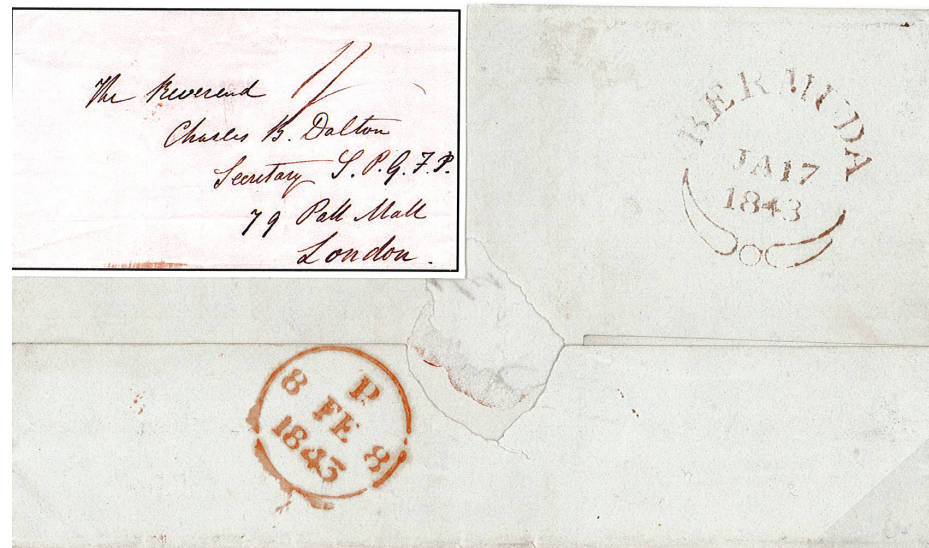 The Reverend
Charles B. Dalton
Secretary S. P. G. F. P.
79 Pall Mall
London.
BERMUDA
JA 17
1843
P
8 FE 8
1843